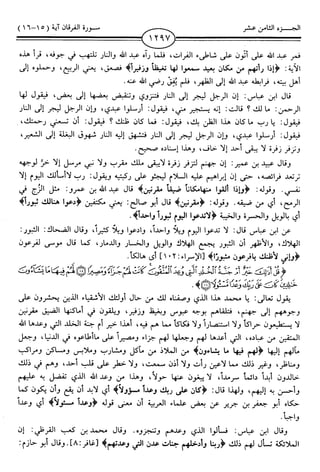 الجـــزء الثامن عشر
سـورة الفرقان آية (١٥-١٦)
١٢٩٧
فمر عبد الله على أتون على شاطىء الفرات، فلما رآه عبد الله والنار تلتهب في جوفه، قرأ هذه
الآية: ﴿إذا رأتهم من مكان بعيد سمعوا لها تغيظاً وزفيراً﴾ فصعق، يعني الربيع، وحملوه إلى
أهل بيته، فرابطه عبد الله إلى الظهر، فلم يُفِقْ رضي الله عنه.
قال ابن عباس: إن الرجل ليجر إلى النار فتنزوي وتنقبض بعضها إلى بعض، فيقول لها
الرحمن: ما لك؟ قالت: إنه يستجير مني، فيقول: أرسلوا عبدي، وإن الرجل ليجر إلى النار
فيقول: يا رب ما كان هذا الظن بك، فيقول: فما كان ظنك؟ فيقول: أن تسعني رحمتك،
فيقول: أرسلوا عبدي، وإن الرجل ليجر إلى النار فتشهق إليه النار شهوق البغلة إلى الشعير،
وتزفر زفرة لا يبقى أحد إلا خاف، وهذا إسناده صحيح.
وقال عبيد بن عمير: إن جهنم لتزفر زفرة لا يبقى ملك مقرب ولا نبي مرسل إلا خرَّ لوجهه
ترتعد فرائصه، حتى إن إبراهيم عليه السلام ليجثو على ركبتيه ويقول: رب لا أسألك اليوم إلا
نفسي. وقوله: ﴿وإذا ألقوا منها مكاناً ضيقاً مقرنين﴾ قال عبد الله بن عمرو: مثل الزُّج في
الرمح، أي من ضيقه. وقوله: ﴿مقرنين﴾ قال أبو صالح: يعني مكتفين ﴿دعوا هنالك ثبوراً﴾
أي بالويل والحسرة والخيبة ﴿لا تدعوا اليوم ثبوراً واحداً﴾.
عن ابن عباس قال: لا تدعوا اليوم ويلاً واحداً، وادعوا ويلاً كثيراً، وقال الضحاك: الثبور:
الهلاك، والأظهر أن الثبور يجمع الهلاك والويل والخسار والدمار، كما قال موسى لفرعون
﴿وإني لأظنك يا فرعون مثبوراً﴾ [الإسراء: ١٠٢] أي هالكاً.
قُلْ أَذَٰلِكَ خَيْرٌ أَمْ جَنَّةُ ٱلْخُلْدِ ٱلَّتِى وُعِدَ ٱلْمُتَّقُونَ كَانَتْ لَهُمْ جَزَآءً وَمَصِيرًا ﴿١٥﴾ لَّهُمْ فِيهَا مَا يَشَآءُونَ
خَٰلِدِينَ كَانَ عَلَىٰ رَبِّكَ وَعْدًا مَّسْـُٔولًا ﴿١٦﴾
يقول تعالى: يا محمد هذا الذي وصفناه لك من حال أولئك الأشقياء الذين يحشرون على
وجوههم إلى جهنم، فتتلقاهم بوجه عبوس وبغيظ وزفير، ويلقون في أماكنها الضيق مقرنين
لا يستطيعون حراكاً ولا استنصاراً ولا فكاكاً مما هم فيه، أهذا خير أم جنة الخلد التي وعدها الله
المتقين من عباده، التي أعدها لهم وجعلها لهم جزاء ومصيراً على ما أطاعوه في الدنيا، وجعل
مآلهم إليها ﴿لهم فيها ما يشاءون﴾ من الملاذ من مآكل ومشارب وملابس ومساكن ومراكب
ومناظر، وغير ذلك مما لا عين رأت ولا أذن سمعت، ولا خطر على قلب أحد، وهم في ذلك
خالدون أبداً دائماً سرمداً، لا يبغون عنها حولاً، وهذا من وعد الله الذي تفضل به عليهم
وأحسن به إليهم، ولهذا قال: ﴿كان على ربك وعداً مسؤولاً﴾ أي لا بد أن يقع وأن يكون كما
حكاه أبو جعفر بن جرير عن بعض علماء العربية أن معنى قوله ﴿وعداً مسئولاً﴾ أي وعداً
واجباً.
وقال ابن عباس: فسألوا الذي وعدهم وتنجزوه. وقال محمد بن كعب القرظي: إن
الملائكة تسأل لهم ذلك ﴿ربنا وأدخلهم جنات عدن التي وعدتهم﴾ [غافر: ٨]. وقال أبو حازم: